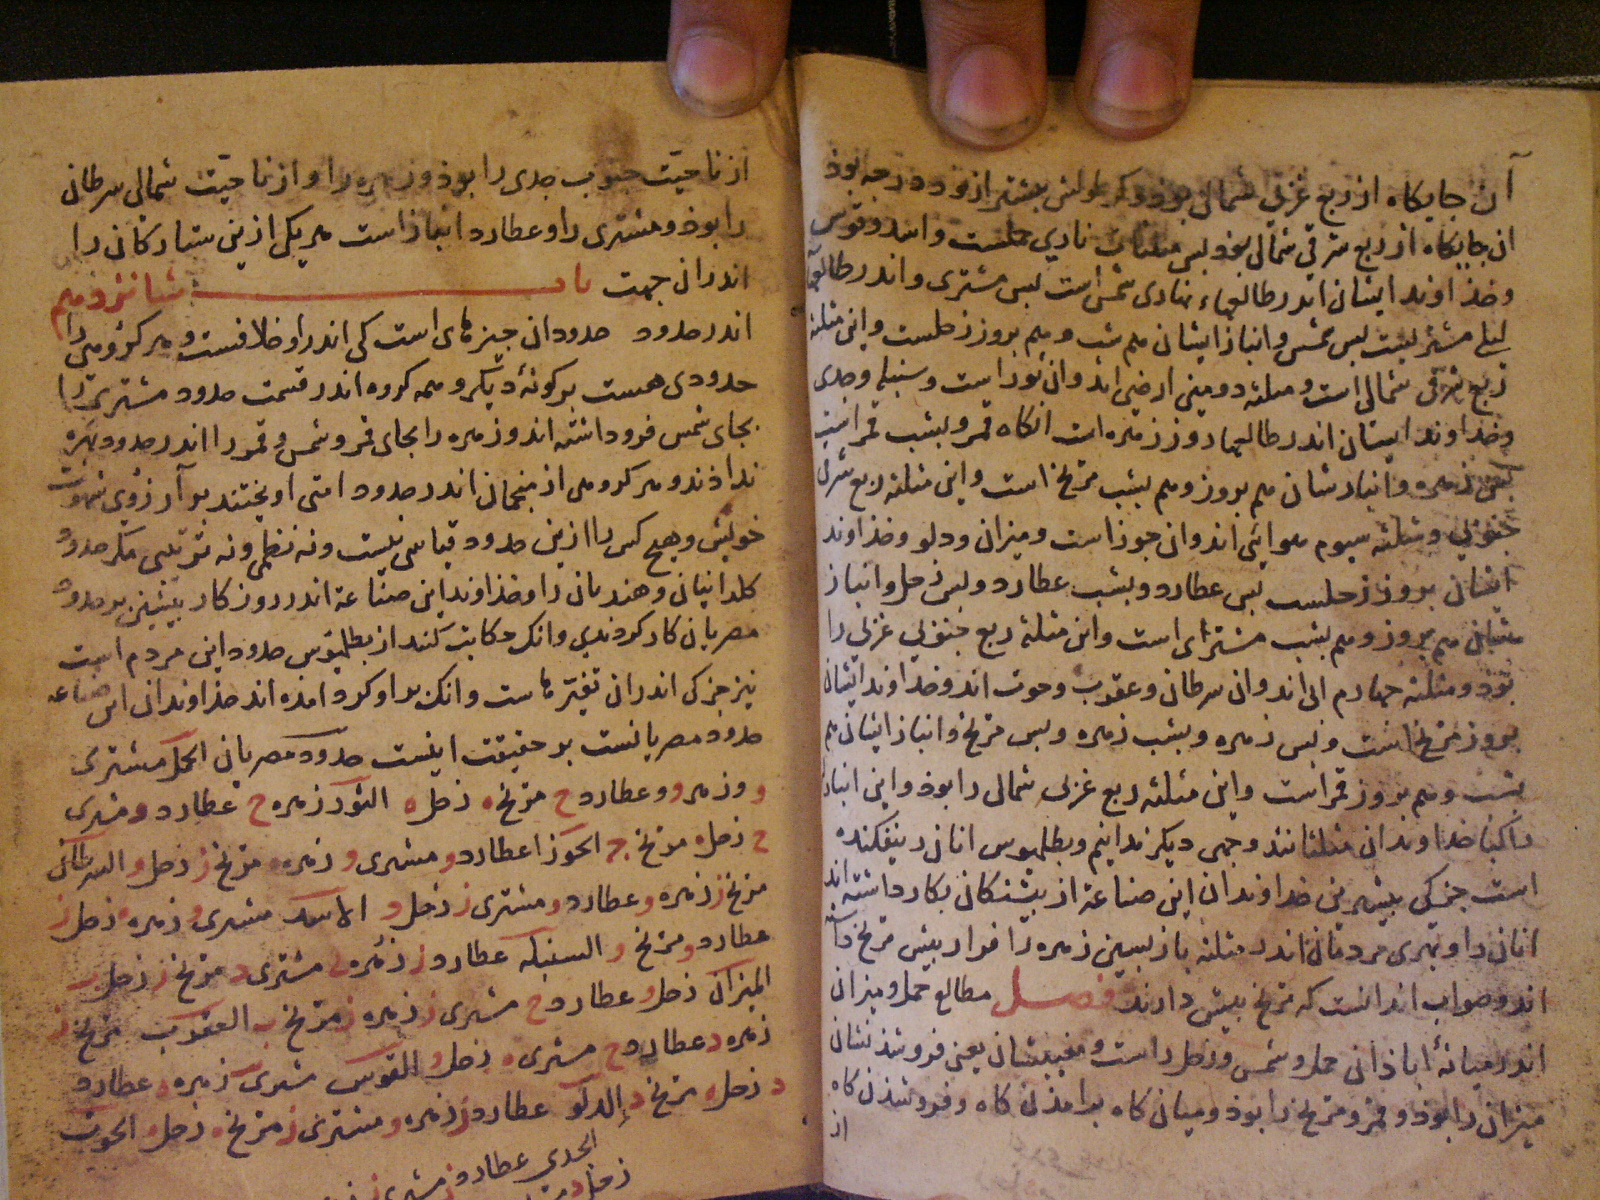 آن جایکاه از ربع غربی شمالی بوذ وکر طولش بیشتر از نود درجه بوذ
ان جایکاه از ربع شرقی شمالی بوذ بس مثلثات ناری حملست واسد وقوس
وخذاوند ایشان اندر طالعهاء نهاری شمس است بس مشتری واندر طالعهاء
لیلی مشتریست بس شمس وانباز ایشان هم شب وهم بروز زحلست واین مثلثه
ربع شرقی شمالی است ومثلثه دومین ارضی اند وان ثور است وسنبله وجدی
وخداوند ایشان اندر طالعها روز زهره است انکاه قمر وبشب قمر است
بس زهره وانبازشان هم بروز وهم بشب مریخ است واین مثلثه ربع شرقی
جنوبی ومثلثه سیوم هوائی اند وان جوزاست ومیزان ودلو وخذاوند
ایشان بروز زحلست بس عطارد وبشب عطارد وبس زحل وانباز
شان هم بروز وهم بشب مشتری است واین مثلثه ربع جنوبی غربی را
بوذ ومثلثه چهارم ابی اند وان سرطان وعقرب وحوت اند وخداوند ایشان
بروز مریخ است وبس زهره وبشب زهره وبس مریخ وانباز ایشان هم
بشب وهم بروز قمر است واین مثلثه ربع غربی شمالی را بوذ واین انبازان
خداوندان مثلثاتند وجهی دیکر ندانیم وبطلمیوس انان را بیفکنده
است جزکی بیشترین خداوندان این صناعة از بیشنکان بکار داشته اند
انان را وبهری مردمان اندر مثلثه باز بسین زهره را فرا بیش مریخ داشته
اند وصواب اندانست که مریخ بیش دارند فصل مطالع حمل ومیزان
اندر میانهٔ اباذانی حمل وشمس وزحل راست ومغیبشان یعنی فروشذنشان
میزان را بوذ وقمر ومریخ را بوذ ومیان کاه برامذن کاه وفروشذن کاه
از
از ناحیت جنوب جدی را بوذ وزهره را واز ناحیت شمالی سرطان
را بوذ ومشتری را وعطارد انباز است هریکی ازین ستارکان را
اندران جهت باب شانزدهم
اندر حدود حدود ان چیزهای است کی اندر او خلافست وهر کروهی را
حدودی هست بر کونهٔ دیکر وهمه کروه اندر قسمت حدود مشتری را
بجای شمس فرو داشته اند وزهره را بجای قمر وشمس وقمر را اندر حدود بهره
نداذند وهر کروهی از منجمان اندر حدود امتی اویختند بر آرزوی شهوت
خویش وهیچ کس را ازین حدود قیاسی نیست ونه نظمی ونه ترتیبی مکر حدود
کلدانیان وهندیان را وخذاوند این صناعة اندر روزکار بیشین بر حدود
مصریان کار کردندی وانک حکایت کنند از بطلمیوس حدود این مردم است
نیز جزکی اندران تغیرهاست وانک براو کرد امذه اند خذاوندان این صناعه
حدود مصریانست بر حقیقت اینست حدود مصریان الحمل مشتری
و وزهره و وعطارد ح مریخ ه زحل ه الثور زهره ح عطارد و مشتری
ح زحل ه مریخ ج الجوزا عطارد و مشتری و زهره ه مریخ ز زحل و السرطان
مریخ ز زهره و عطارد و مشتری ز زحل د الاسد مشتری و زهره ه زحل ز
عطارد و مریخ و السنبله عطارد ز زهره ی مشتری د مریخ ز زحل ب
المیزان زحل و عطارد ح مشتری ز زهره ز مریخ ب العقرب مریخ ز
زهره د عطارد ح مشتری ه زحل و القوس مشتری زهره ه عطارد
د زحل ه مریخ د الدلو عطارد ز زهره و مشتری ز مریخ ه زحل ه الحوت
الجدی عطارد ز مشتری ز
زحل د